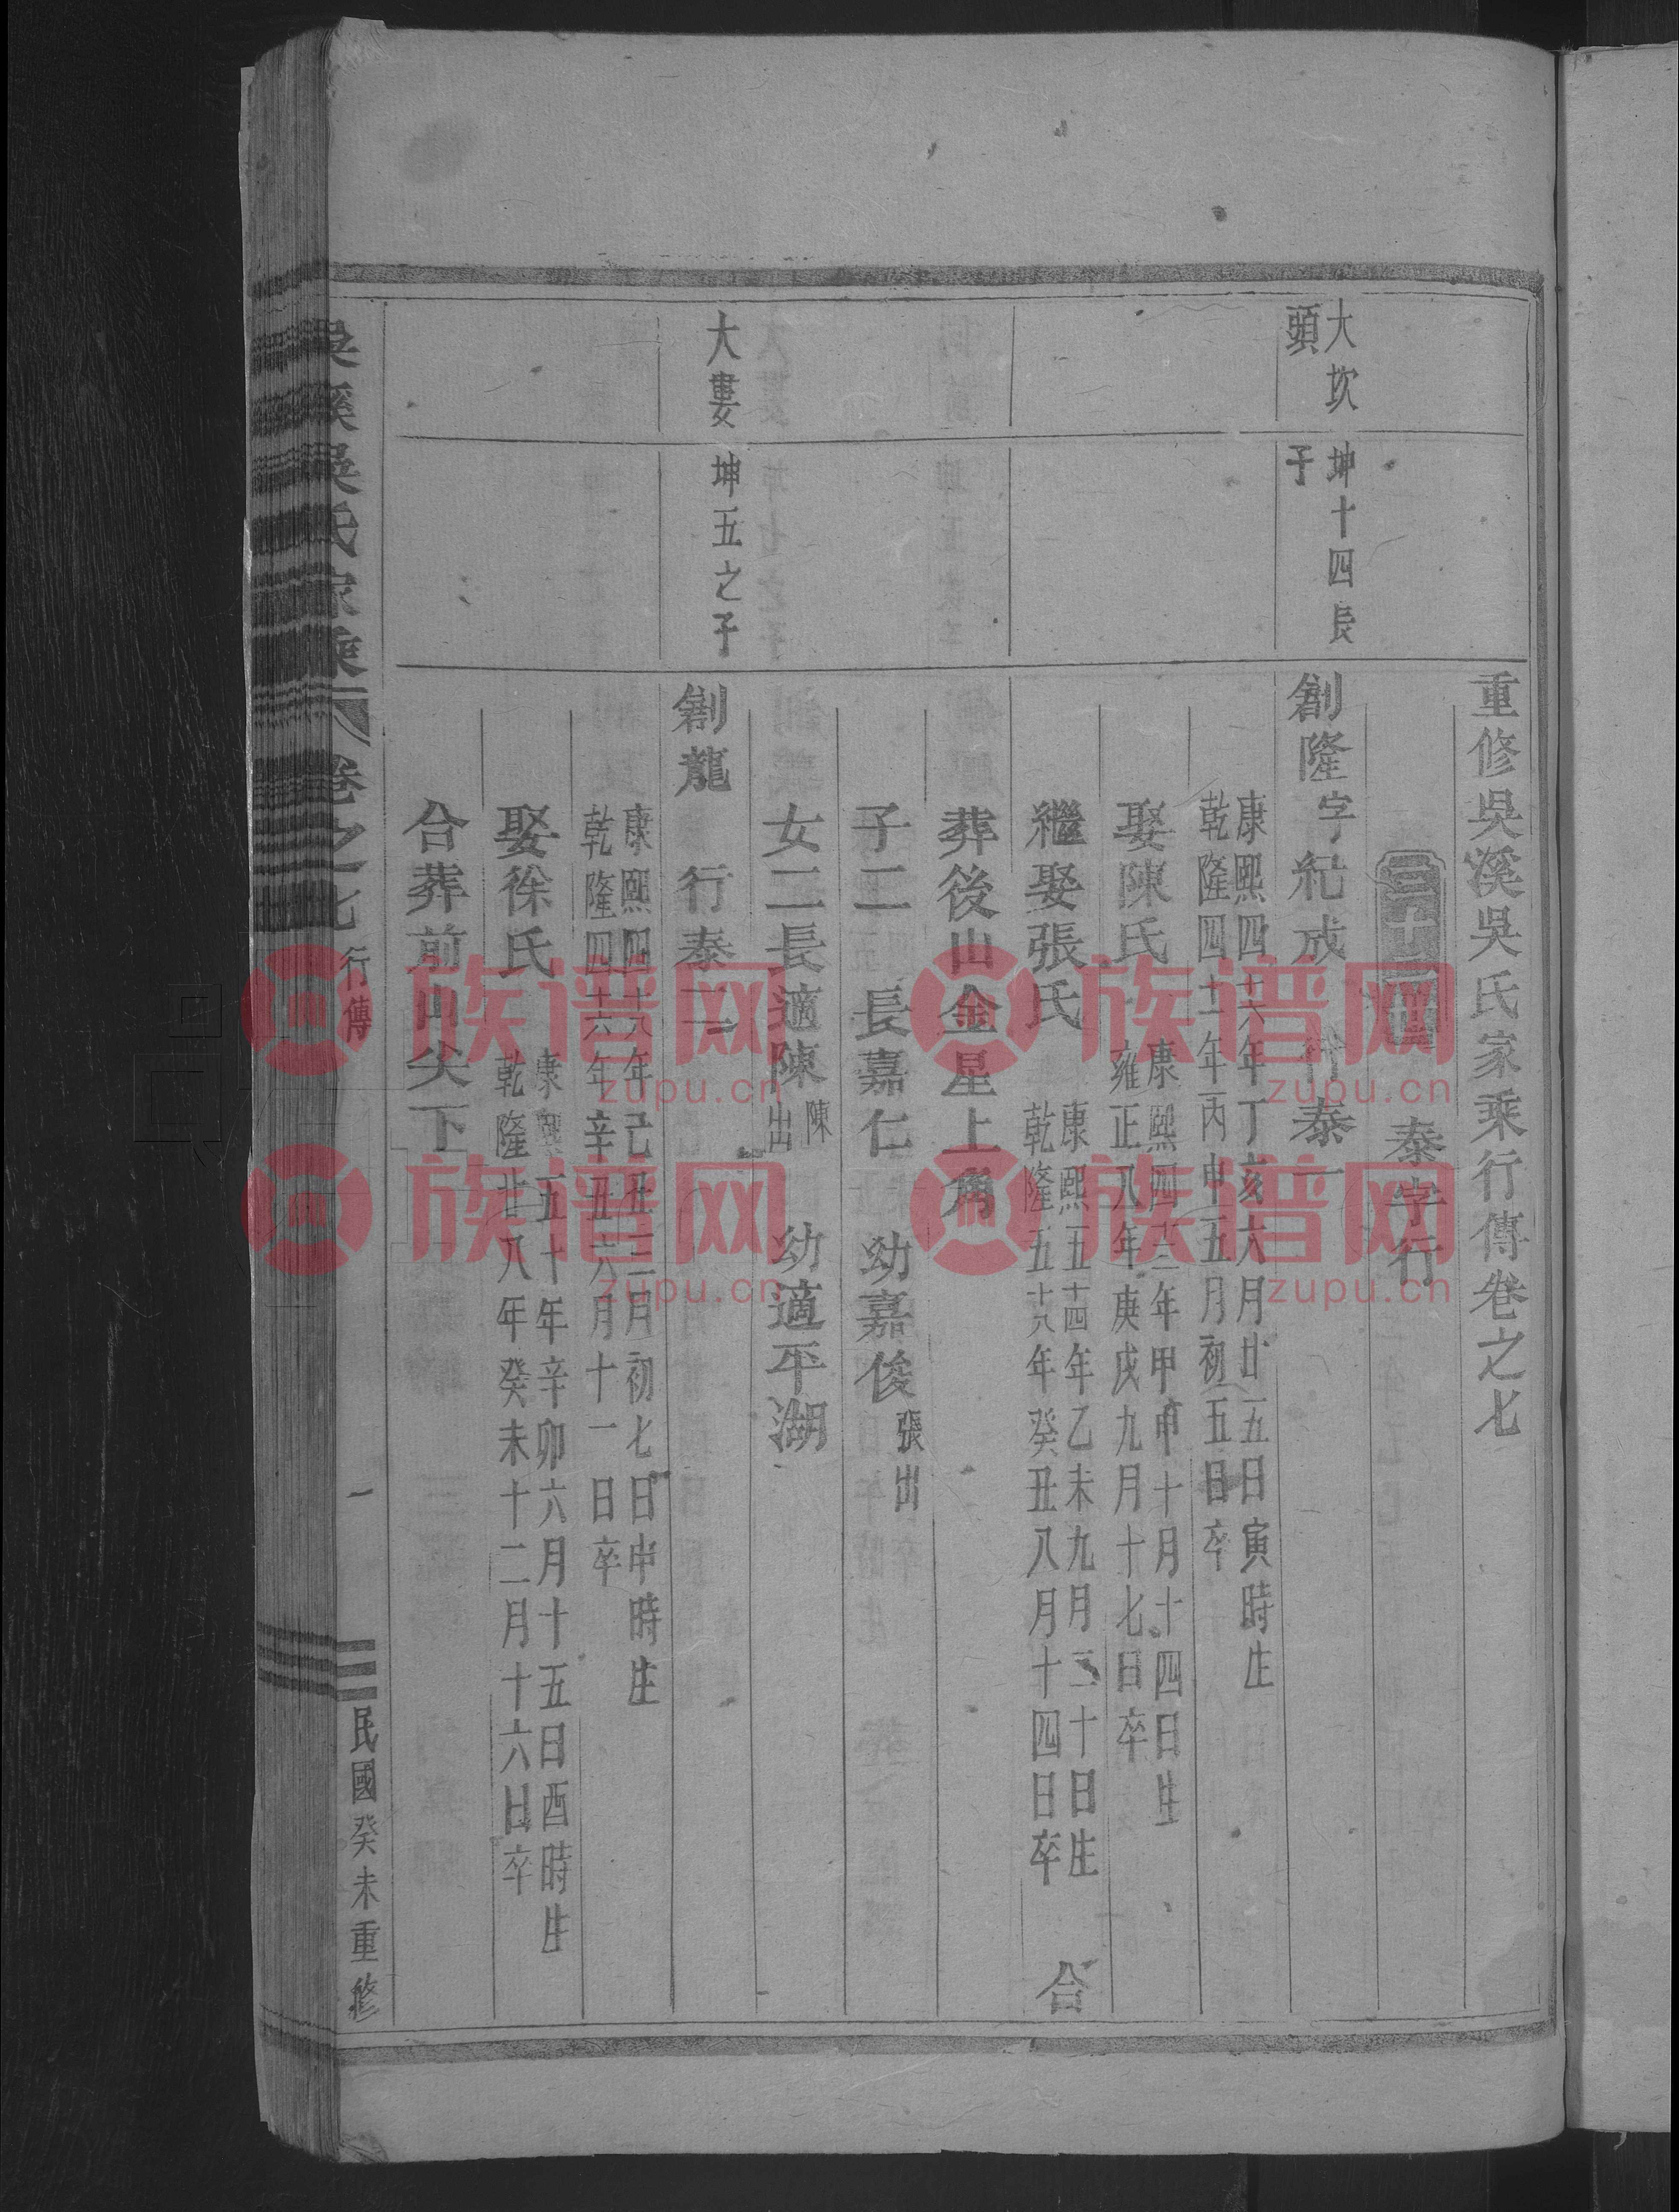 重修吳溪吳氏家乘行傳卷之七
三十四世 泰字行
大坎
頭
坤十四長
子
創隆字紀成 行泰一
康熙四十六年丁亥六月廿五日寅時生
乾隆四十一年丙申五月初五日卒
娶陳氏
康熙四三年甲申十月十四日生
雍正八年庚戌九月十七日卒
繼娶張氏
康熙五十四年乙未九月二十日生
乾隆五十八年癸丑八月十四日卒
合
葬後山金星上角
子二 長嘉仁 幼嘉俊 張出
女二長適陳 陳出 幼適平湖
大婁
坤五之子
創龍 行泰二
康熙四十八年己丑三月初七日申時生
乾隆四十六年辛丑六月十一日卒
娶徐氏
康熙五十年辛卯六月十五日酉時生
乾隆廿八年癸未十二月十六日卒
合葬前山尖下
吳溪吳氏家乘 卷之七 行傳 一 民國癸未重修
族谱网
zupu.cn
族谱网
zupu.cn
族谱网
zupu.cn
族谱网
zupu.cn